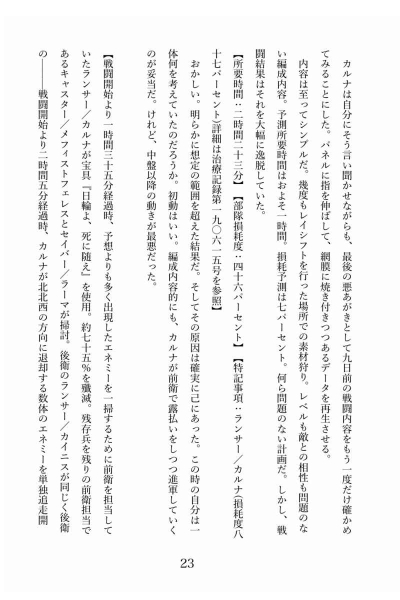 カルナは自分にそう言い聞かせながらも、最後の悪あがきとして九日前の戦闘内容をもう一度だけ確かめ
てみることにした。パネルに指を伸ばして、網膜に焼き付きつつあるデータを再生させる。
内容は至ってシンプルだ。幾度もレイシフトを行った場所での素材狩り。レベルも敵との相性も問題のな
い編成内容。予測所要時間はおよそ一時間。損耗予測は七パーセント。何ら問題のない計画だ。しかし、戦
闘結果はそれを大幅に逸脱していた。
【所要時間：二時間二十三分】【部隊損耗度：四十六パーセント】【特記事項：ランサー／カルナ（損耗度八
十七パーセント）詳細は治療記録第一九〇六一五号を参照】
おかしい。明らかに想定の範囲を超えた結果だ。そしてその原因は確実に己にあった。この時の自分は一
体何を考えていたのだろうか。初動はいい。編成内容的にも、カルナが前衛で露払いをしつつ進軍していく
のが妥当だ。けれど、中盤以降の動きが最悪だった。
【戦闘開始より一時間三十五分経過時、予想よりも多く出現したエネミーを一掃するために前衛を担当して
いたランサー／カルナが宝具『日輪よ、死に随え』を使用。約七十五％を殲滅。残存兵を残りの前衛担当で
あるキャスター／メフィストフェレスとセイバー／ラーマが掃討。後衛のランサー／カイニスが同じく後衛
の――戦闘開始より二時間五分経過時、カルナが北北西の方向に退却する数体のエネミーを単独追走開
23